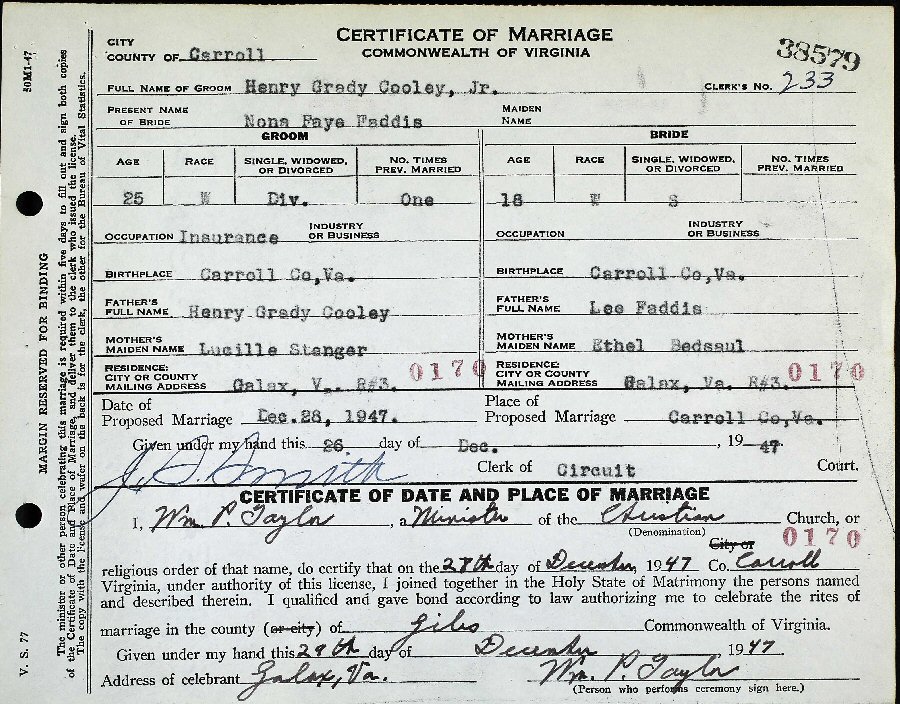 CERTIFICATE OF MARRIAGE
COMMONWEALTH OF VIRGINIA
CITY
COUNTY OF Carroll
38579
FULL NAME OF GROOM Henry Grady Cooley, Jr. CLERK'S NO. 233
PRESENT NAME OF BRIDE Nona Faye Faddis MAIDEN NAME
GROOM BRIDE
AGE RACE SINGLE, WIDOWED, OR DIVORCED NO. TIMES PREV. MARRIED AGE RACE SINGLE, WIDOWED, OR DIVORCED NO. TIMES PREV. MARRIED
25 W Div. One 18 W S
OCCUPATION Insurance INDUSTRY OR BUSINESS OCCUPATION INDUSTRY OR BUSINESS
BIRTHPLACE Carroll Co,Va. BIRTHPLACE Carroll Co,Va.
FATHER'S FULL NAME Henry Grady Cooley FATHER'S FULL NAME Lee Faddis
MOTHER'S MAIDEN NAME Lucille Stanger MOTHER'S MAIDEN NAME Ethel Bedsaul
RESIDENCE: CITY OR COUNTY MAILING ADDRESS Galax, V.. R#3. 0170 RESIDENCE: CITY OR COUNTY MAILING ADDRESS Galax, Va. R#3. 0170
Date of Proposed Marriage Dec.28, 1947. Place of Proposed Marriage Carroll Co,Va.
Given under my hand this 26 day of Dec. , 19 47
Smith Clerk of Circuit Court.
CERTIFICATE OF DATE AND PLACE OF MARRIAGE
I, Wm. P. Taylor , a Minister of the Christian Church, or
(Denomination) City or 0170
religious order of that name, do certify that on the 28th day of December, 1947 Co. Carroll
Virginia, under authority of this license, I joined together in the Holy State of Matrimony the persons named
and described therein. I qualified and gave bond according to law authorizing me to celebrate the rites of
marriage in the county (or city) of Giles Commonwealth of Virginia.
Given under my hand this 29th day of December 1947
Address of celebrant Galax, Va. Wm. P. Taylor
(Person who performs ceremony sign here.)
50M1-47
MARGIN RESERVED FOR BINDING
V. S. 77
The minister or other person celebrating this marriage is required within five days to fill out and sign both copies
of the Certificate of Date and Place of Marriage, and deliver them to the clerk who issued the license.
The copy with the license and wafer on the back is for the clerk, the other for the Bureau of Vital Statistics.